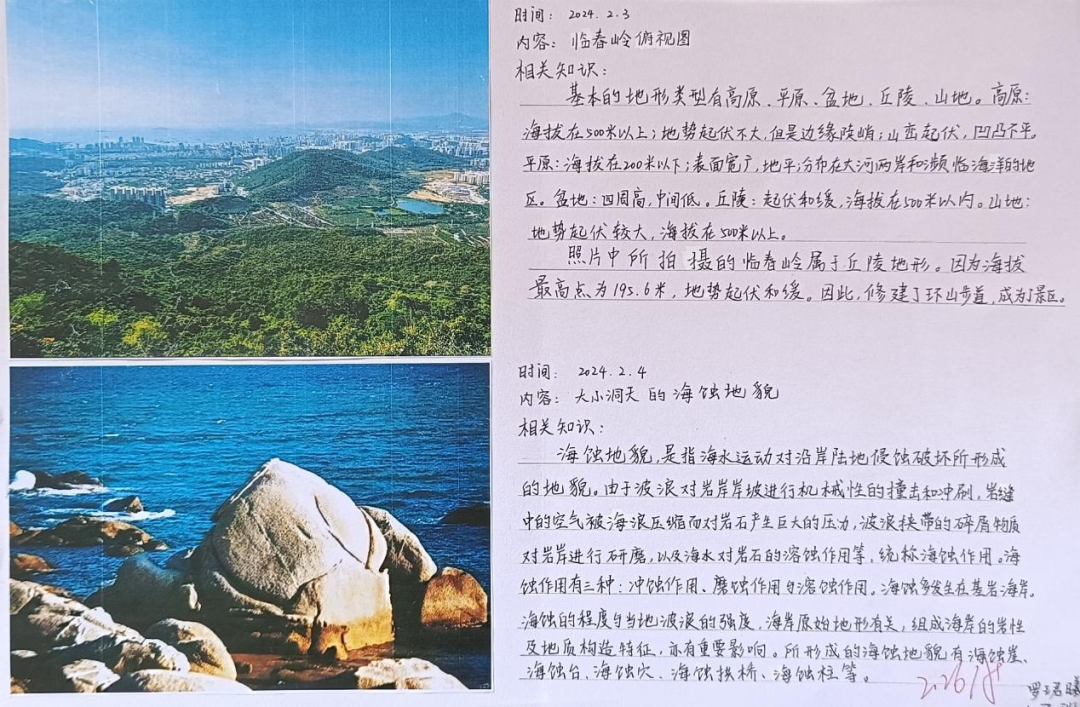 时间： 2024.2.3
内容：临春岭俯视图
相关知识：
基本的地形类型有高原、平原、盆地、丘陵、山地。高原：
海拔在500米以上；地势起伏不大，但是边缘陡峭；山峦起伏，凹凸不平。
平原：海拔在200米以下；表面宽广，地平；分布在大河两岸和濒临海洋的地
区。盆地：四周高，中间低。丘陵：起伏和缓，海拔在500米以内。山地：
地势起伏较大，海拔在500米以上。
照片中所拍摄的临春岭属于丘陵地形。因为海拔
最高点为195.6米，地势起伏和缓。因此，修建了环山步道，成为了景区。
时间： 2024.2.4
内容：大小洞天的海蚀地貌
相关知识：
海蚀地貌，是指海水运动对沿岸陆地侵蚀破坏所形成
的地貌。由于波浪对岩岸岸坡进行机械性的撞击和冲刷，岩缝
中的空气被海浪压缩而对岩石产生巨大的压力，波浪挟带的碎屑物质
对岩岸进行研磨，以及海水对岩石的溶蚀作用等，统称海蚀作用。海
蚀作用有三种：冲蚀作用、磨蚀作用与溶蚀作用。海蚀多发生在基岩海岸。
海蚀的程度与当地波浪的强度、海岸原始地形有关，组成海岸的岩性
及地质构造特征，亦有重要影响。所形成的海蚀地貌有海蚀崖、
海蚀台、海蚀穴、海蚀拱桥、海蚀柱等。